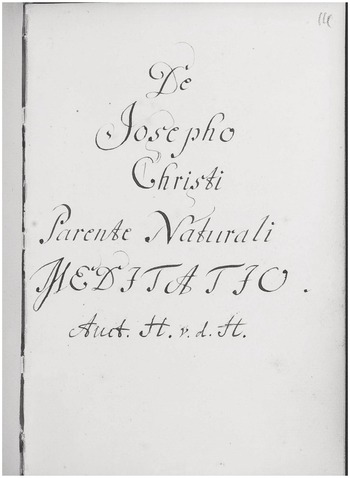 De
Josepho
Christi
Parente Naturali
MEDITATIO.
Auct. H. v. d. H.